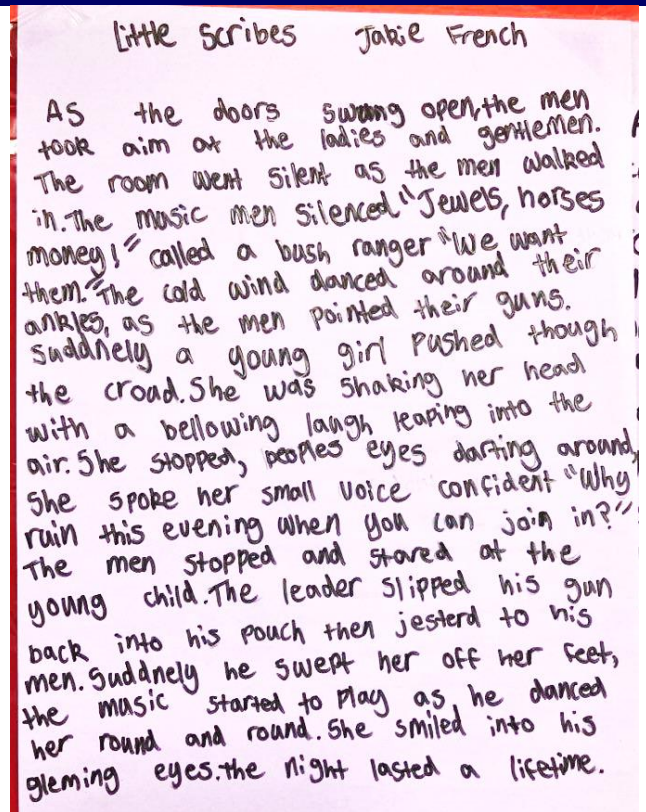 Little Scribes Jakie French
As the doors swung open, the men
took aim at the ladies and gentlemen.
The room went silent as the men walked
in. The music men silenced "Jewels, horses
money!" called a bush ranger "We want
them." The cold wind danced around their
ankles, as the men pointed their guns.
Suddnely a young girl pushed though
the croud. She was shaking her head
with a bellowing laugh leaping into the
air. She stopped, peoples eyes darting around,
She spoke her small voice confident "Why
ruin this evening when you can join in?"
The men stopped and stared at the
young child. The leader slipped his gun
back into his pouch then jesterd to his
men. Suddnely he swept her off her feet,
the music started to play as he danced
her round and round. She smiled into his
gleming eyes. The night lasted a lifetime.